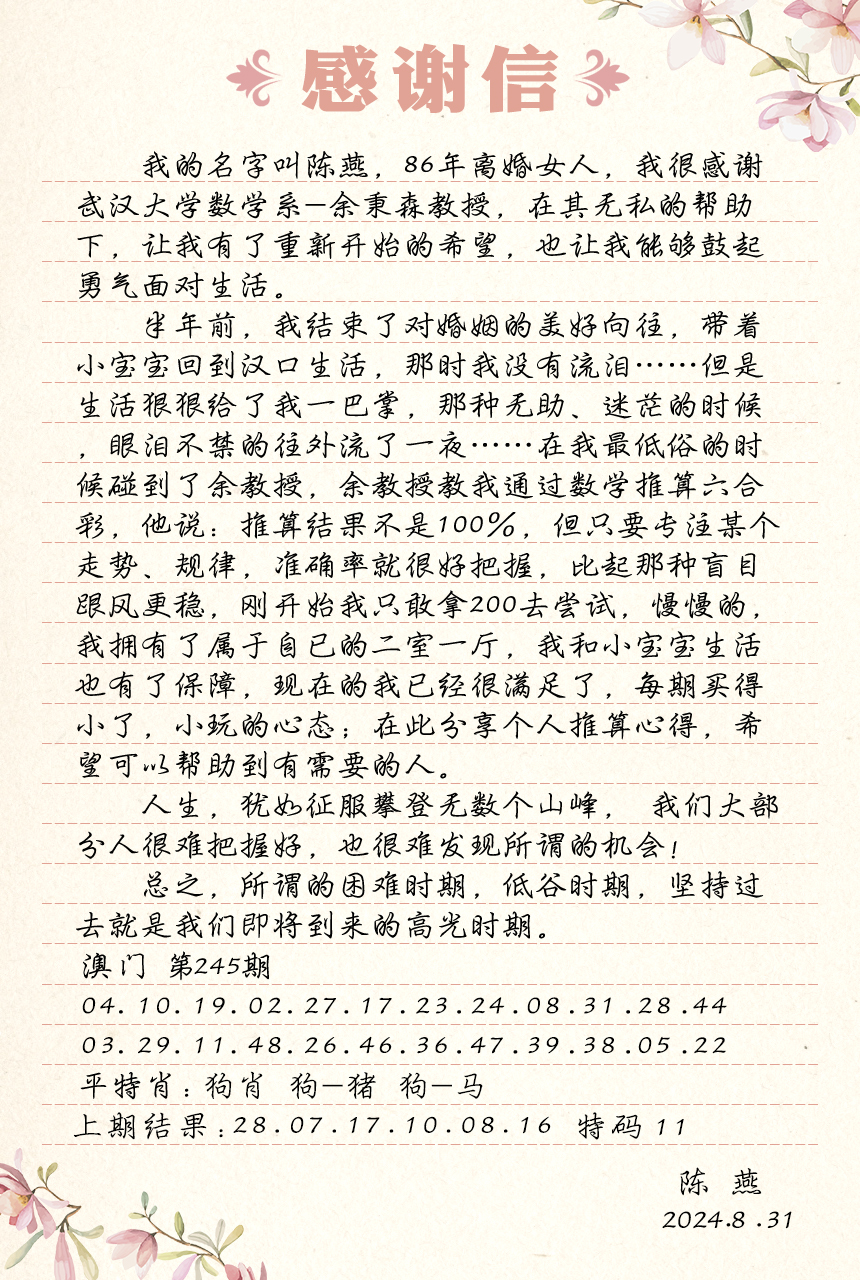 感谢信
我的名字叫陈燕，86年离婚女人，我很感谢
武汉大学数学系—余秉森教授，在其无私的帮助
下，让我有了重新开始的希望，也让我能够鼓起
勇气面对生活。
半年前，我结束了对婚姻的美好向往，带着
小宝宝回到汉口生活，那时我没有流泪……但是
生活狠狠给了我一巴掌，那种无助、迷茫的时候
，眼泪不禁的往外流了一夜……在我最低俗的时
候碰到了余教授，余教授教我通过数学推算六合
彩，他说：推算结果不是100%，但只要专注某个
走势、规律，准确率就很好把握，比起那种盲目
跟风更稳，刚开始我只敢拿200去尝试，慢慢的，
我拥有了属于自已的二室一厅，我和小宝宝生活
也有了保障，现在的我已经很满足了，每期买得
小了，小玩的心态；在此分享个人推算心得，希
望可以帮助到有需要的人。
人生，犹如征服攀登无数个山峰， 我们大部
分人很难把握好，也很难发现所谓的机会！
总之，所谓的困难时期，低谷时期，坚持过
去就是我们即将到来的高光时期。
澳门 第245期
04.10.19.02.27.17.23.24.08.31.28.44
03.29.11.48.26.46.36.47.39.38.05.22
平特肖：狗肖 狗—猪 狗—马
上期结果：28.07.17.10.08.16 特码 11
陈 燕
2024.8.31